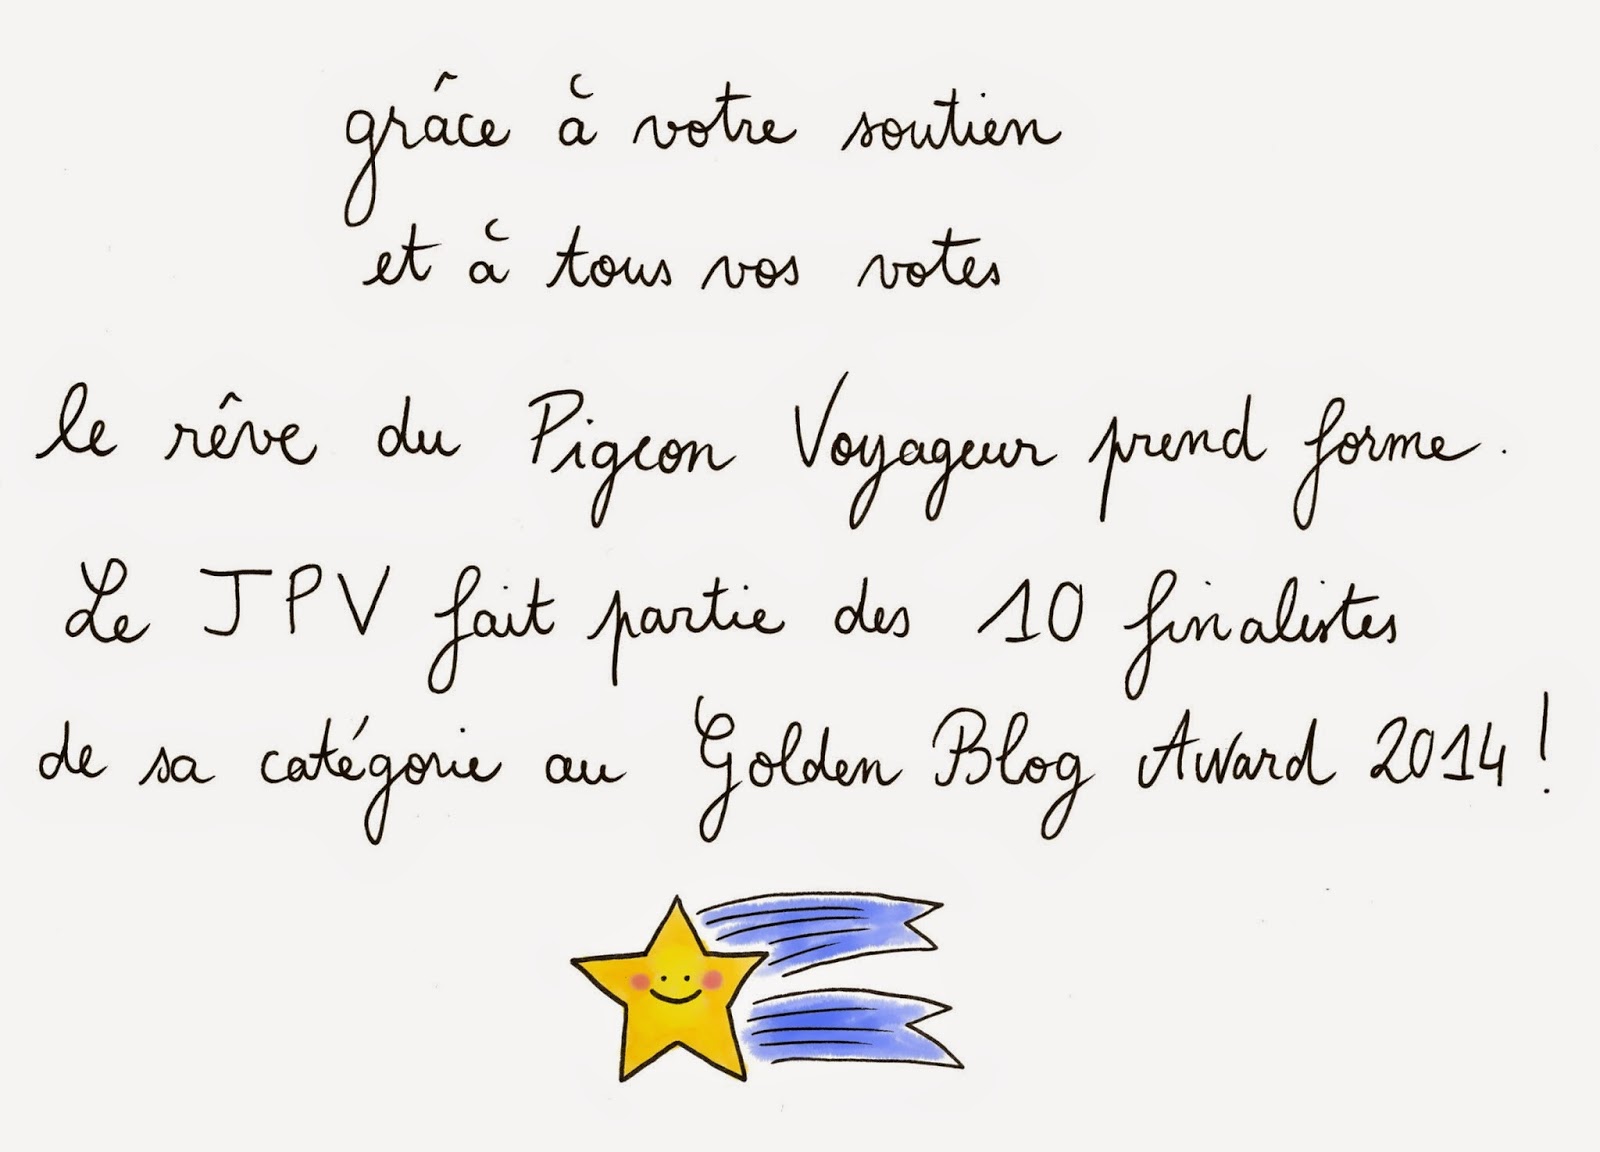 grâce à votre soutien
et à tous vos votes
le rêve du Pigeon Voyageur prend forme.
Le JPV fait partie des 10 finalistes
de sa catégorie au Golden Blog Award 2014 !